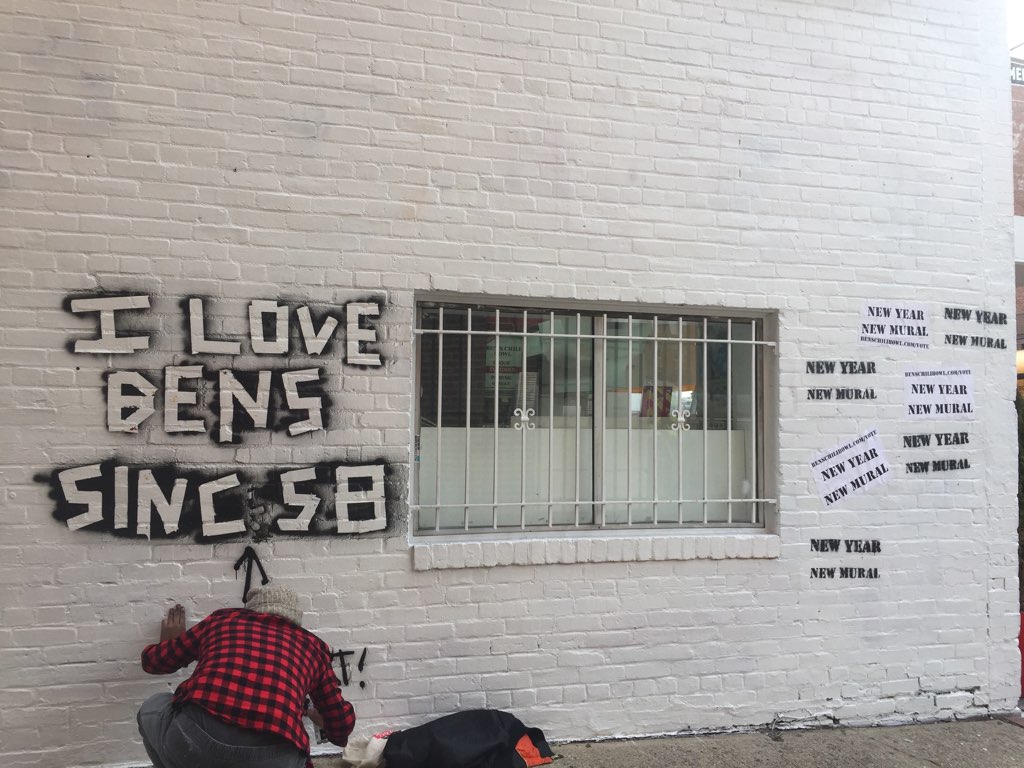 I LOVE
BENS
SINC 58
T!
NEW YEAR
NEW MURAL
BENSCHILIBOWL.COM/VOTE
NEW YEAR
NEW MURAL
NEW YEAR
NEW MURAL
BENSCHILIBOWL.COM/VOTE
NEW YEAR
NEW MURAL
BENSCHILIBOWL.COM/VOTE
NEW YEAR
NEW MURAL
NEW YEAR
NEW MURAL
NEW YEAR
NEW MURAL